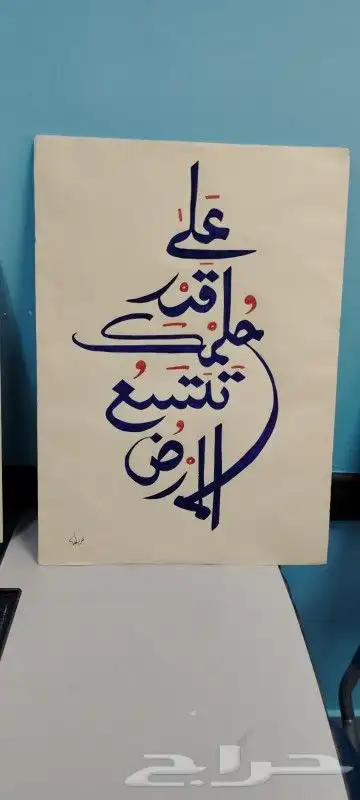 عَلَى
قَدْرِ
حُلْمِكَ
تَتَّسِعُ
الأَرْضُ
حراج